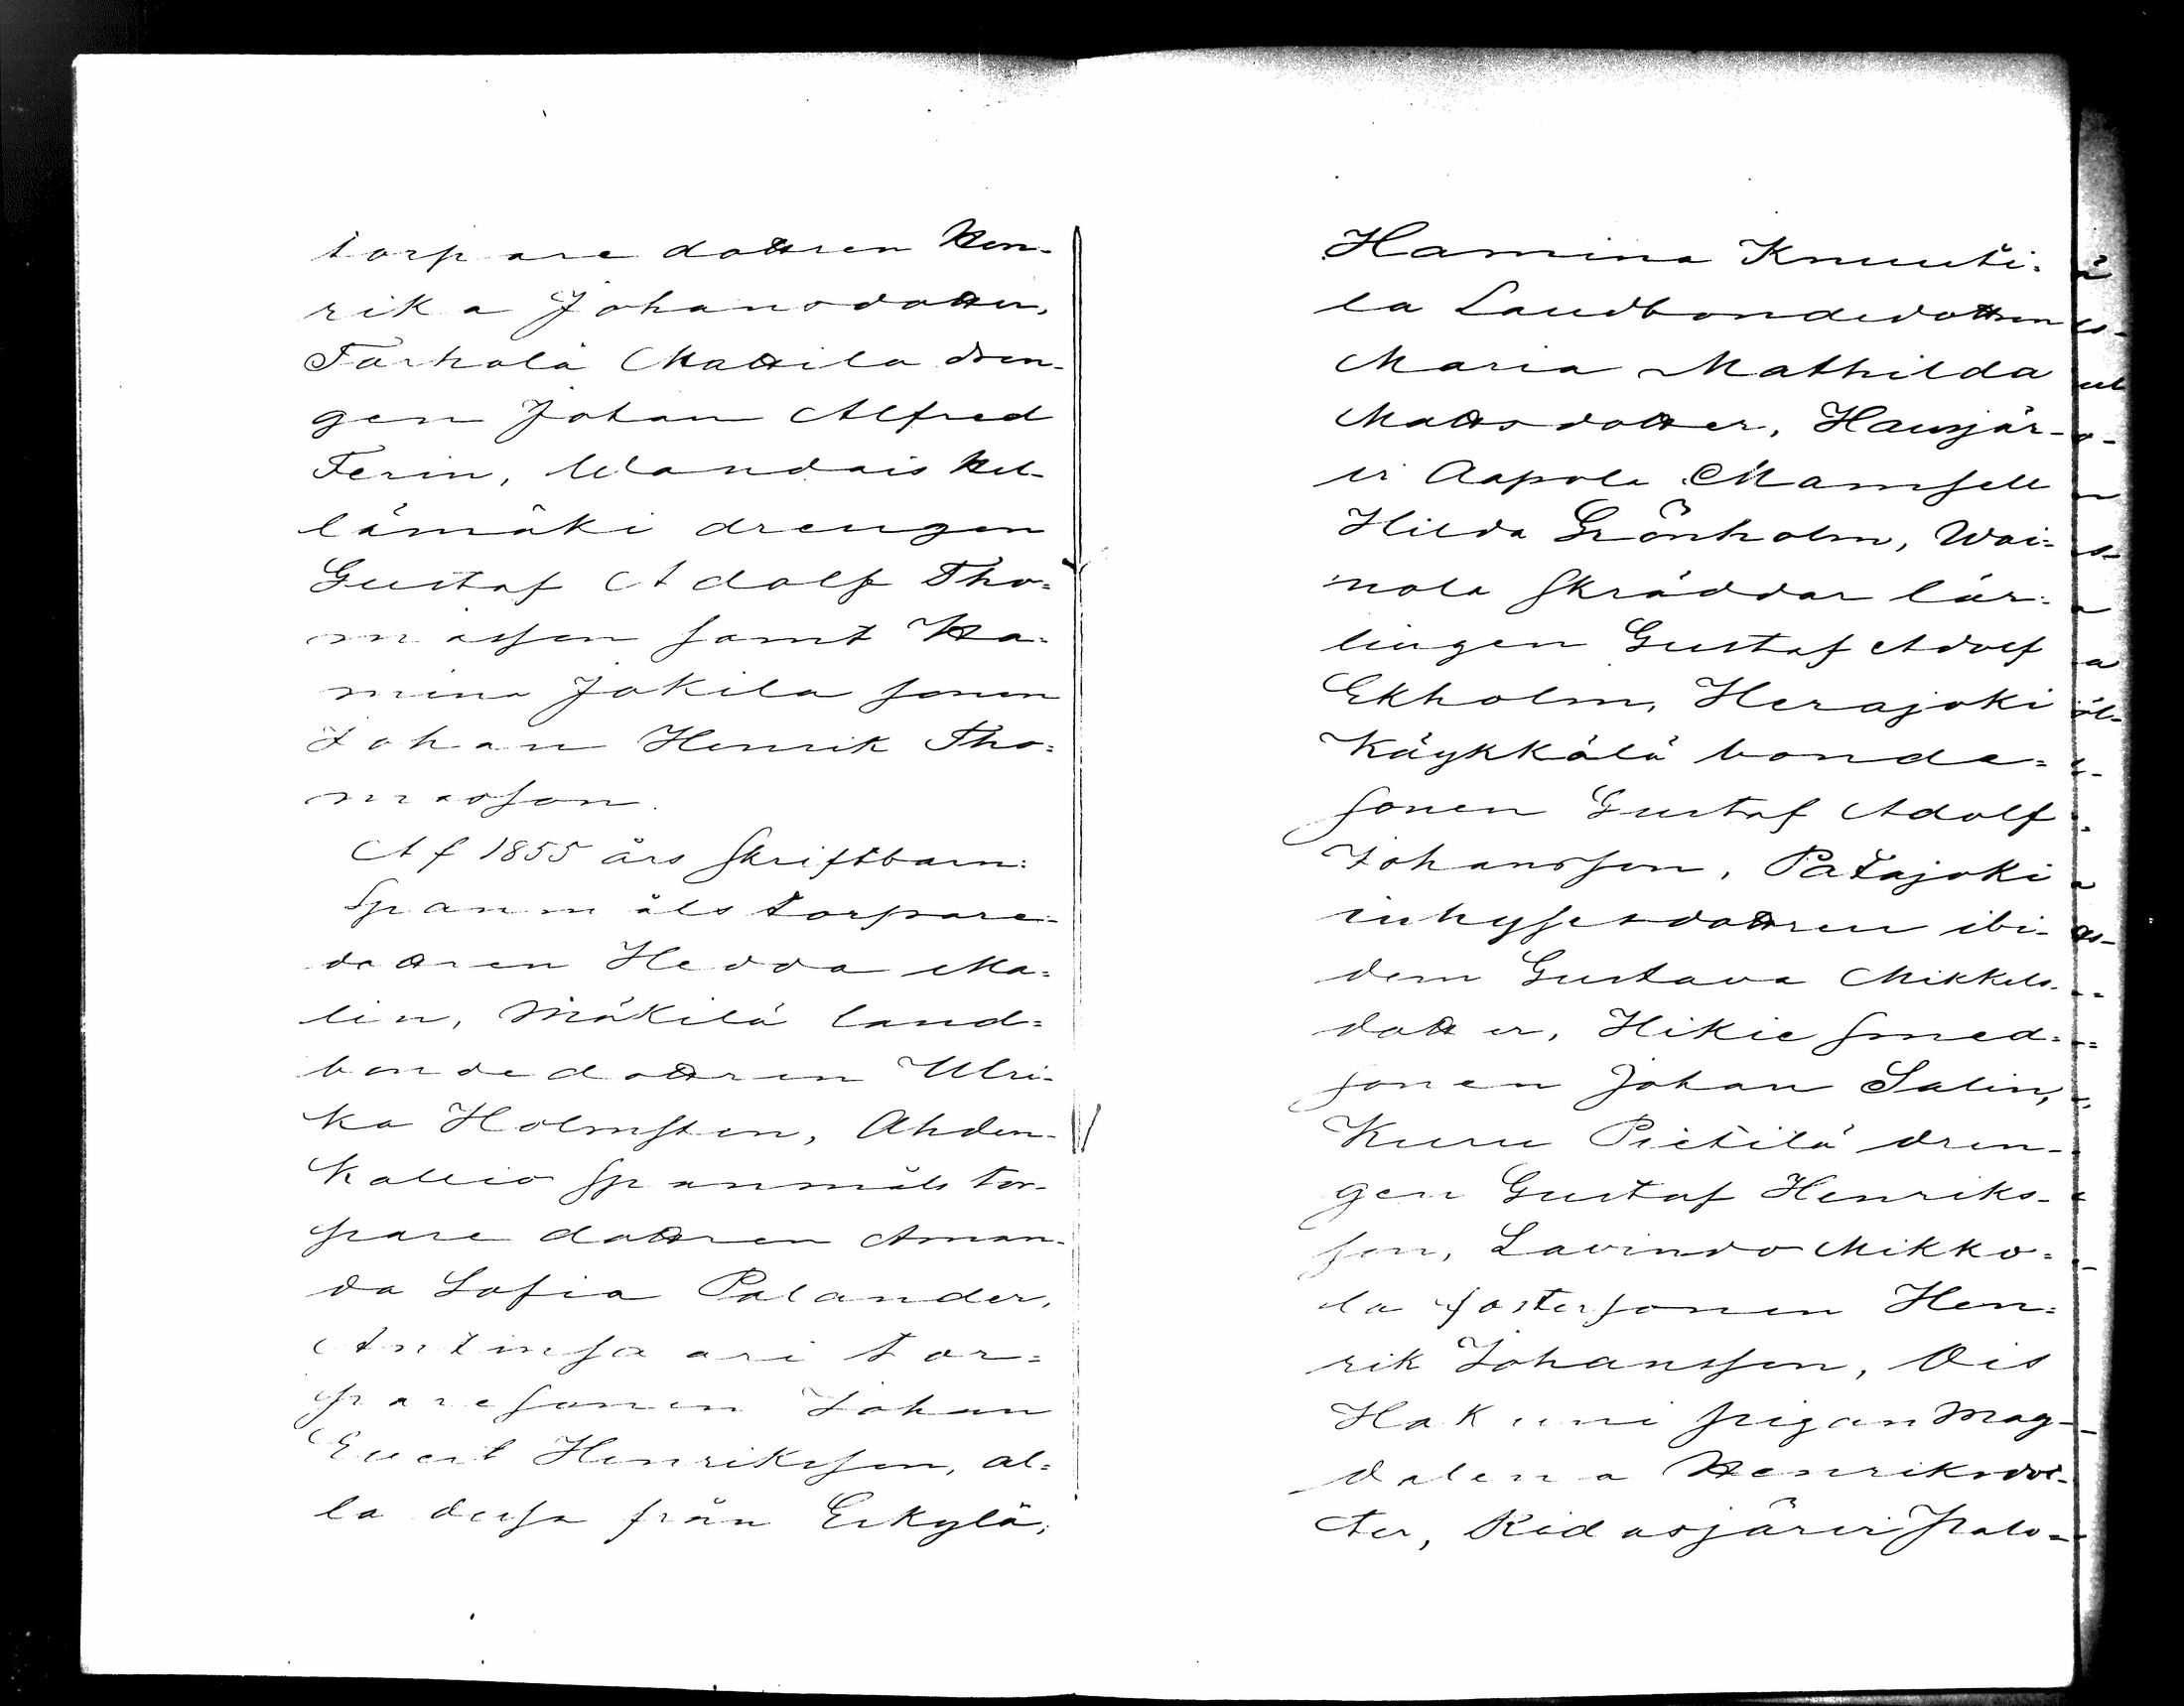 torpare dottren Hen-
rika Johansdotter,
Torhola Mattila dren-
gen Johan Alfred
Ferin, Wandais Kel-
lämäki drengen
Gustaf Adolf Tho-
masson samt Ha-
mina Jokila sonen
Johan Henrik Tho=
masson.
Af 1855 års Skriftbarn:
Spanmåls torpare-
dottren Hedda Ma=
lin, Mäkilä land=
bondedottren Ulri-
ka Holmsten, Ahden-
kallio Spanmåls tor-
pare dottren Aman-
da Sofia Palander,
Antinsaari tor=
paresonen Johan
Evert Henriksson, al=
la dessa från Erkylä;
Hamina Knuuti-
la Landbondedottren
Maria Mathilda
Mattsdotter, Hausjär-
vi Aapola Mamsell
Hilda Grönholm, Woi=
nola Skräddar lär-
lingen Gustaf Adolf
Ekholm, Herajoki
Käykkälä bonde=
sonen Gustaf Adolf
Johansson, Patajoki
inhysesdottren ibi-
dem Gustava Mikkels-
dotter, Hikie smed-
sonen Johan Salin,
Kuru Pietilä dren-
gen Gustaf Henriks-
son, Lavindo Mikko=
la fostersonen Hen=
rik Johansson, Ois
Hakuni pigan Mag-
dalena Henriksdot-
ter, Ridasjärvi Palo=